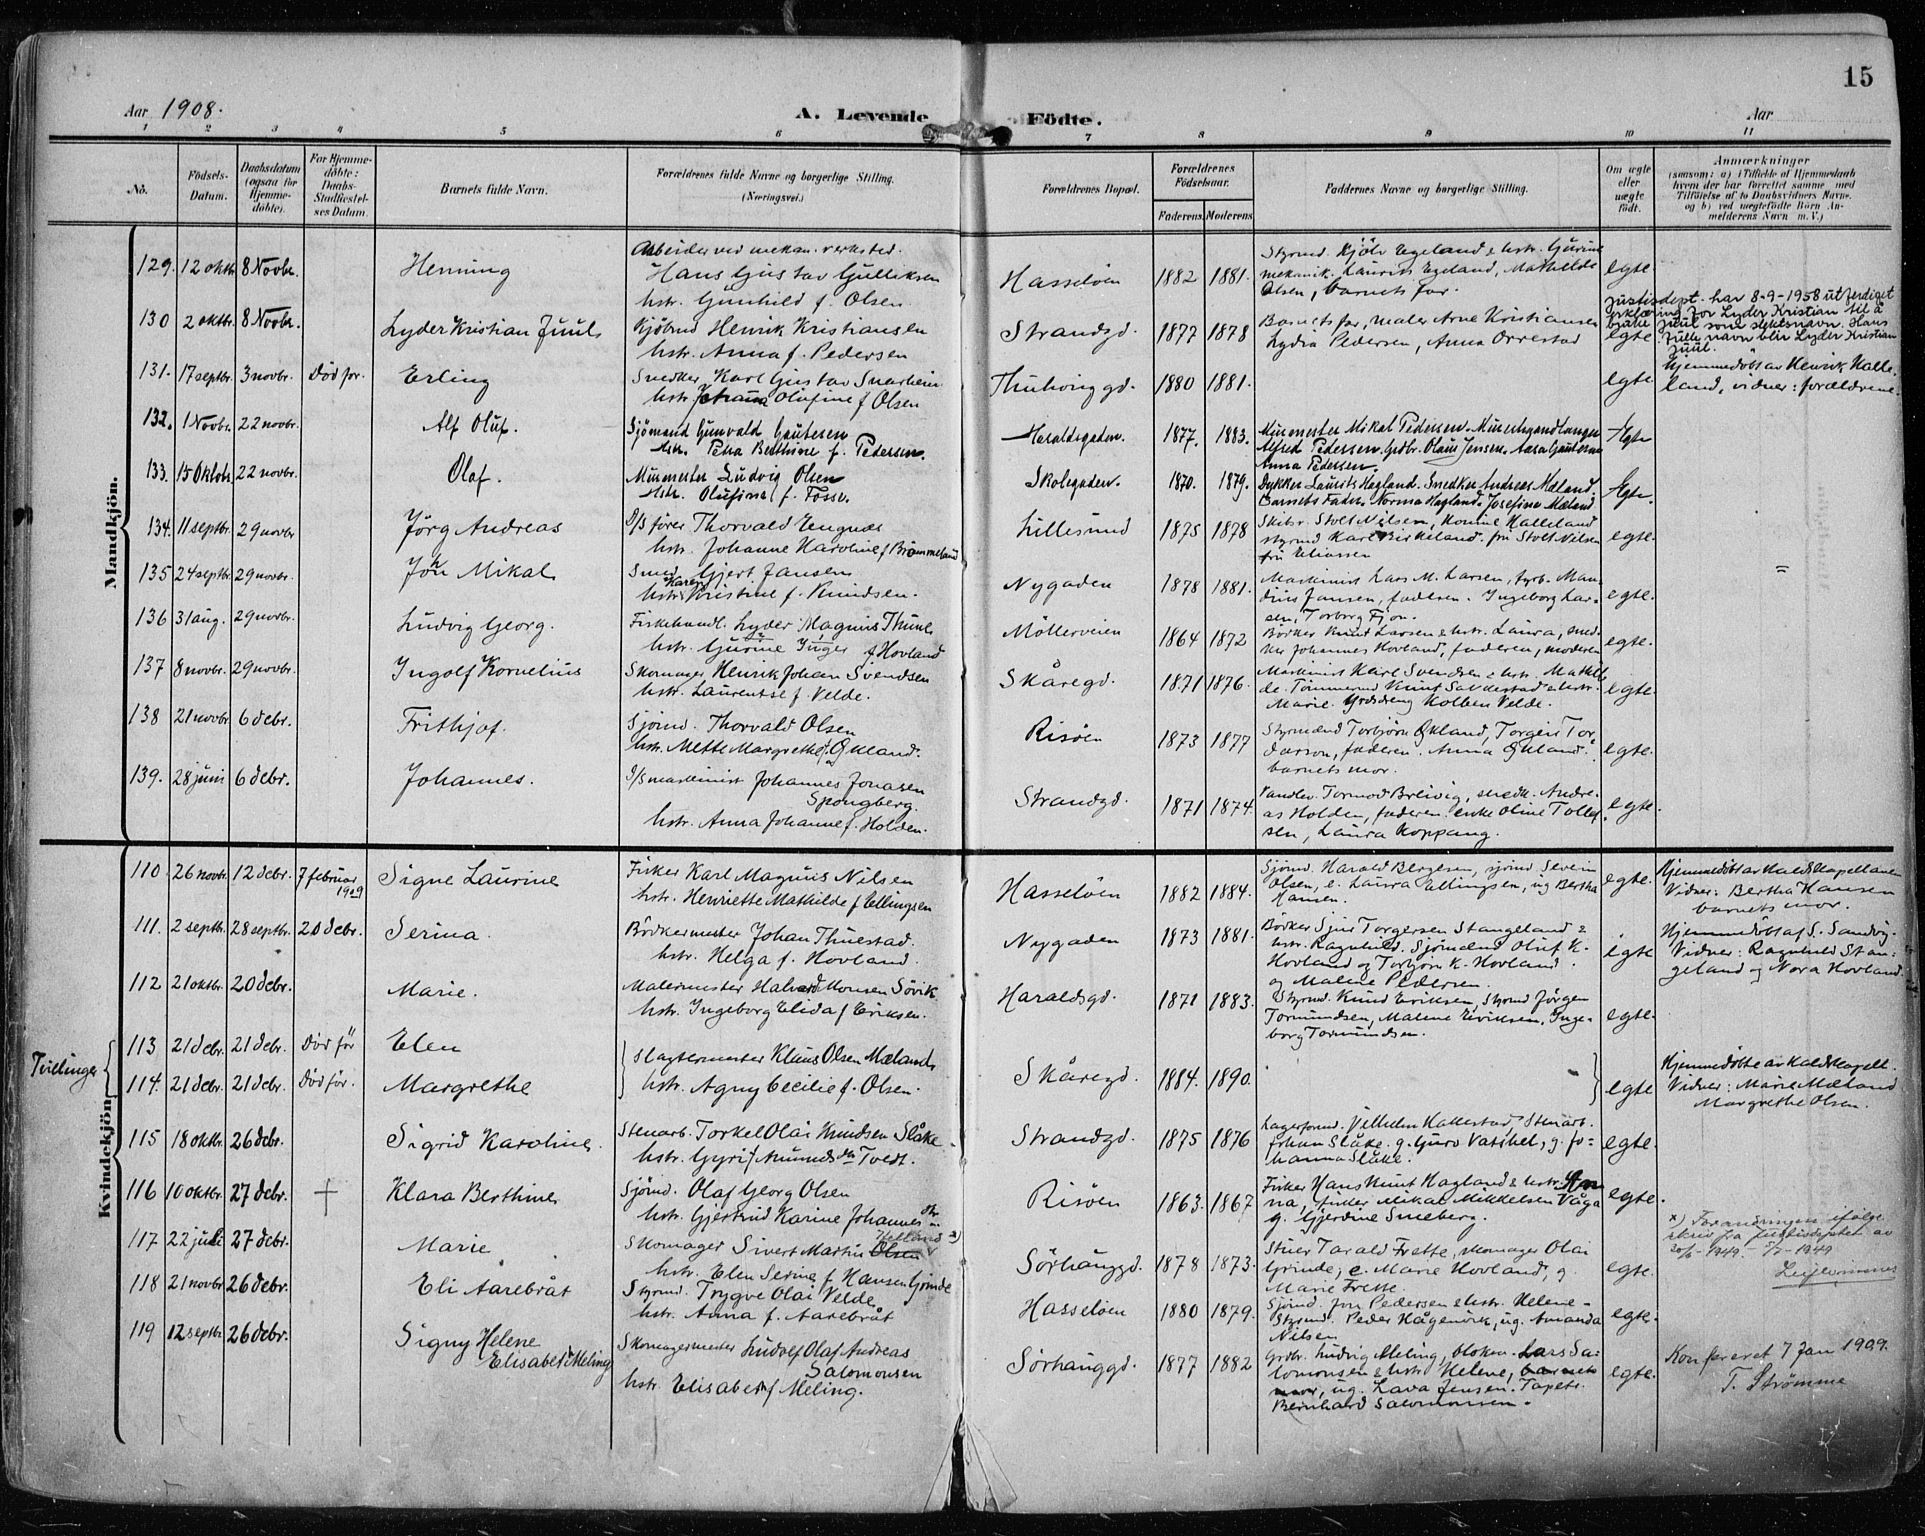 15
Aar 1908.
A. Levende Födte.
Aar
1 2 3 4 5 6 7 8 9 10 11
No.
Födsels-Datum.
Daabsdatum (ogsaa for Hjemme-döbte).
For Hjemme-döbte: Daabs-Stadfæstel-ses Datum.
Barnets fulde Navn.
Forældrenes fulde Navne og borgerlige Stilling. (Næringsvei.)
Forældrenes Bopæl.
Forældrenes Födselsaar.
Faderens. Moderens
Faddernes Navne og borgerlige Stilling.
Om ægte eller uægte födt.
Anmærkninger
(saasom: a) i Tilfælde af Hjemmedaab
hvem der har forrettet samme med
Tilföielse af to Daabsvidners Navne.
og b) ved uægtefödte Börn An-
melderens Navn m. V.)
Mandkjön.
129. 12 oktbr 8 Novbr. Henning
Arbeider ved mekan. verksted.
Hans Gustav Gulliksen
hstr. Gunhild f. Olsen.
Hasseløen 1882 1881.
Styrmd. Kjøle Egeland & hstr. Gurine
mekanik. Laurits Egeland, Mathilde
Olsen, barnets far.
egte.
130 2 oktbr. 8 Novbr. Lyder Kristian Juul
Kjøbmd Henrik Kristiansen
hstr. Anna f. Pedersen
Strandgd. 1877 1878
Barnets far, maler Arne Kristiansen
Lydia Pedersen, Anna Orrestad
egte
Justisdept. har 8-9-1958 utferdiget
erklæring for Lyder Kristian til å
bruke Juul som slektsnavn. Hans
fulle navn blir Lyder Kristian
Juul.
131. 17 septbr. 3 novbr. Død før. Erling
Snedker Karl Gustav Snarheim
hstr. Johanna Olufine f Olsen
Thuhouggd. 1880 1881. egte
Hjemmedøbt av Henrik Halle-
land, vidner: forældrene.
132. 1 Novbr. 22 novbr. Alf Oluf.
Sjömand Gunvald Gautesen
Hstr. Petra Berthine f. Pedersen.
Haraldsgaden. 1877. 1883.
Murmester Mikal Pedersen. Murerhandlanger
Alfred Pedersen. Grdbr. Olaus Jensen. Aasa Gautesen
Anna Pedersen.
Egte
133. 15 Oktobr. 22 novbr. Olaf.
Murmester Ludvig Olsen
Hstr. Olufine f. Fosse.
Skolegaden. 1870. 1879.
Dykker Laurits Hagland. Snedker Andreas Mæland.
Barnets Fader. Norma Hagland. Josefine Mæland
Egte.
134. 11 septbr. 29 novbr Jörg Andreas
D/S fører Thorvald Engnæs
hstr. Johanne Karoline f Brommeland
Lillesund 1875 1878
Skibsr. Stolt Nilsen, Konine Halleland
styrmd Karl Birkeland. fru Stolt Nilsen
fru Eliassen
egte.
135 24 septbr. 29 novbr. Jón Mikal
Smed Gjert Jansen
hstr. Karen Kristine f. Knudsen.
Nygaden 1878 1881.
Maskinist Lars M. Larsen, fyrb. Man-
dius Jansen, faderen. Ingeborg Lar-
sen, Torborg Fjon.
egte. =
136 31 aug. 29 novbr. Ludvig Georg.
Fiskehandl. Lyder Magnus Thune
hstr. Gurine Inger f Hovland
Möllerveien 1864 1872
Bødker Knut Larsen & hstr. Laura, sned-
ker Johannes Hovland, faderen, moderen
egte.
137 8 novbr. 29 novbr. Ingolf Kornelius
Skomager Henrik Johan Svendsen
hstr. Laurentse f. Velde.
Skåregd. 1871 1876.
Maskinist Karl Svendsen & hstr. Mathil-
de. Tømmermd Knut Salderstad & hstr.
Marie. Grdsdreng Kolben Velde.
egte.
138 21 novbr 6 debr. Frithjof.
Sjömd. Thorvald Olsen
hstr. Mette Margrethe f. Økland.
Risöen 1873 1877
Styrmand Torbjörn Økland, Torgeir Tor-
darson, faderen. Anna Økland.
barnets mor.
egte.
139. 28 juni 6 debr. Johannes.
D/S maskinist Johannes Jonasen
Spongberg.
hstr. Anna Johanne f. Holden.
Strandgd. 1871 1874.
Vandlev. Tormod Breivig, snedk. Andre-
as Holden, faderen. enke Oline Tollef-
sen, Laura Koppang.
egte.
Kvindekjön
110 26 novbr. 12 debr. 7 februar 1909 Signe Laurine
Fisker Karl Magnus Nilsen
hstr. Henriette Mathilde f Ellingsen
Hasseløen 1882 1884.
Sjömd. Harald Bergesen, sjömd Severin
Olsen, e. Laura Ellingsen, ug Bertha
Hansen.
egte.
Hjemmedøbt av Kaldskapellanen
Vidner: Bertha Hansen
barnets mor.
111. 2 septbr. 28 septbr. 20 debr. Serina.
Bödkermester Johan Thuestad.
hstr. Helga f. Hovland.
Nygaden 1873 1881.
Børker Sjur Torgersen Stangeland &
hstr. Ragnhild. Sjømænd Oluf K.
Hovland og Torbjørn K. Hovland.
og Malene Pedersen.
egte
Hjemmedøbt af S. Sandvig-
Vidner: Ragnhild Stan-
geland og Nora Hovland.
112 21 oktbr. 20 debr. Marie.
Malermester Halvard Monsen Sørvik
hstr. Ingeborg Elida f Eriksen.
Haraldsgd. 1871 1883.
Styrmd. Knud Eriksen, Styrmd Jörgen
Tormundsen, Malene Eriksen, Inge-
borg Tormundsen.
egte.
Tvillinger
113 21 debr. 21 debr. Död för Elen
114. 21 debr. 21 debr. Död før. Margrethe
Slagtermester Klaus Olsen Mæland
hstr. Agny Cecilie f. Olsen.
Skåregd. 1884. 1890. egte
Hjemmedøbte av Kaldskapell.
Vidner: Marie Mæland
Margrethe Olsen.
115 18 oktbr. 26 debr. Sigrid Karoline.
Stenarb. Torkel Olai Knudsen Slåke
hstr. Gyri f. Amunds dtr Tvedt.
Strandgd. 1875 1876
Lagerformd. Vilhelm Hallestad, Stenarb.
Johan Slåke. g. Guro Vatshel, g. Jo-
hanna Slåke.
egte.
116 10 oktbr. 27 debr. + Klara Berthine
Sjömd. Olaf Georg Olsen
hstr. Gjertrud Karine Johannesdtr.
Risøen 1863. 1867
Fisker Hans Knut Hagland & hstr. An-
na, fisker Mikal Mikkelsen Våga
g. Gjerdine Smeberg.
egte.
117 22 juli 27 debr. Marie
Skomager Sivert Martin Olsen Hetland x)
hstr. Elen Serine f. Hansen Grinde
Sörhauggd. 1878 1873.
Stuer Tarald Frette, skomager Olai
Grinde, e. Marie Hovland, g.
Marie Frette.
egte.
x) Forandringen ifølge
skriv fra justisdeptet av
20/6-1949. - 5/7-1949
118 21 novbr 26 debr. Eli Aarebråt
Styrmd. Trygve Olai Velde
hstr. Anna f. Aarebråt
Hasseløen 1880 1879.
Sjömd. Jon Pedersen & hstr. Helene-
Styrmd. Peder Hågenvik, ug. Amanda
Nilsen
egte.
119 12 septbr 26 debr. Signy Helene
Elisabet Meling
Skomagermester Ludolf Olaf Andreas
Salomonsen
hstr. Elisabeth f Meling.
Sörhauggd. 1877 1882
Grdbr. Ludvig Meling, blokkm. Lars Sa-
lomonsen & hstr Helene, barnets
mor, ug. Lava Jensen. Tapets.
Bernhard Salomonsen.
egte.
Konfereret 7 Jan 1909.
T. Strömme